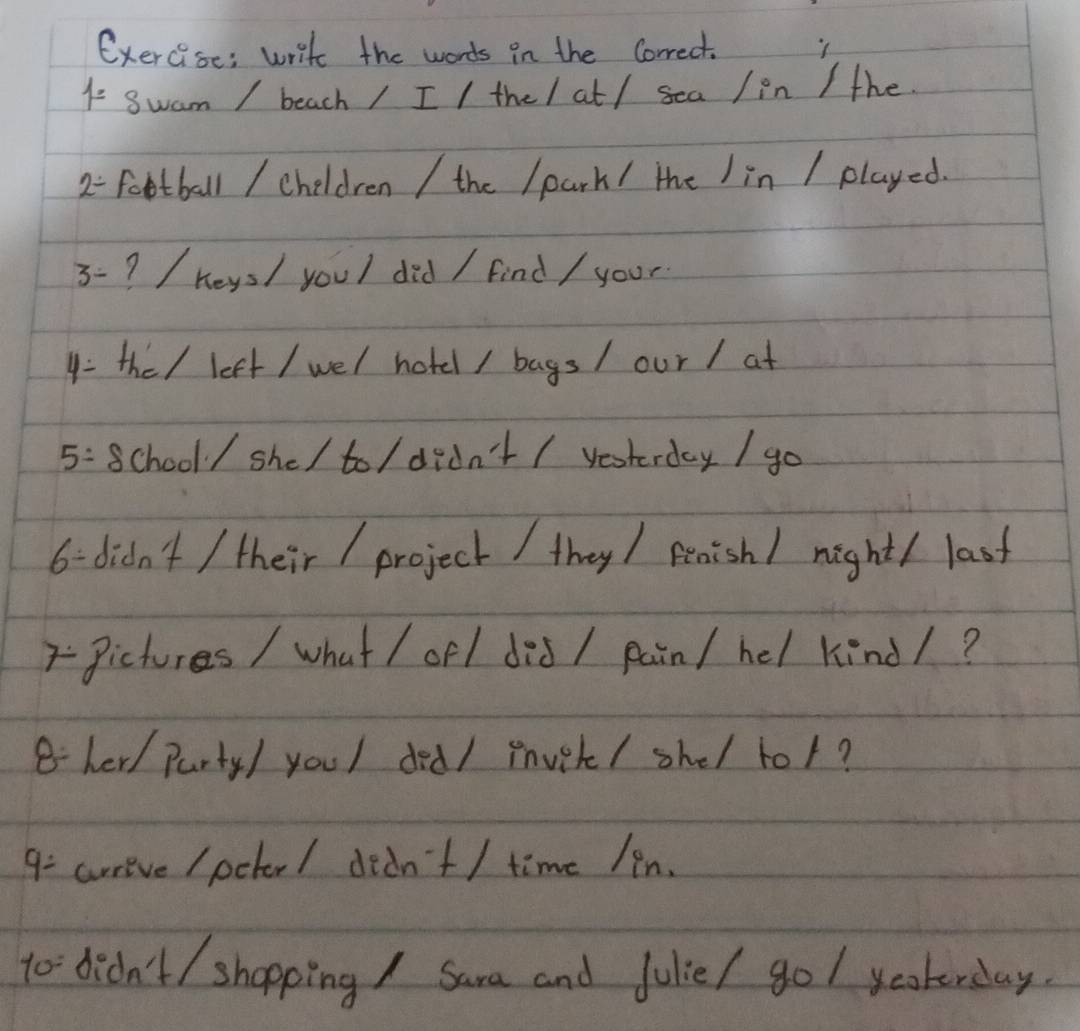 Exercise: write the words in the Correct.
1- Swam / beach / I / the / at / sea / in / the.
2- Football / Children / the / park / the / in / played.
3- ? / Keys / you / did / find / your.
4- the / left / we / hotel / bags / our / at
5- School / she / to / didn't / yesterday / go
6- didn't / their / project / they / finish / night / last
7- Pictures / what / of / did / pain / he / Kind / ?
8- her / Party / you / did / invite / she / to / ?
9- arrive / peter / didn't / time / in.
10- didn't / shopping / Sara and Julie / go / yesterday.